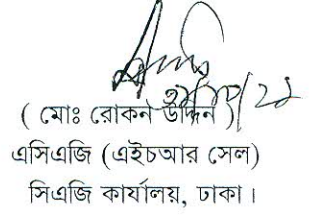 ( মোঃ রোকন উদ্দিন )
এসিএজি (এইচআর সেল)
সিএজি কার্যালয়, ঢাকা।